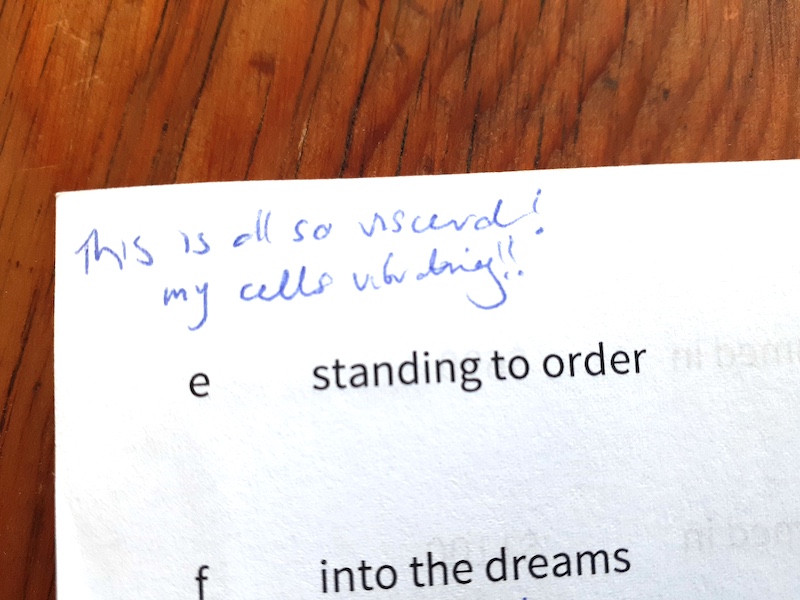 This is all so visceral!
my cells vibrating!!
e standing to order
f into the dreams